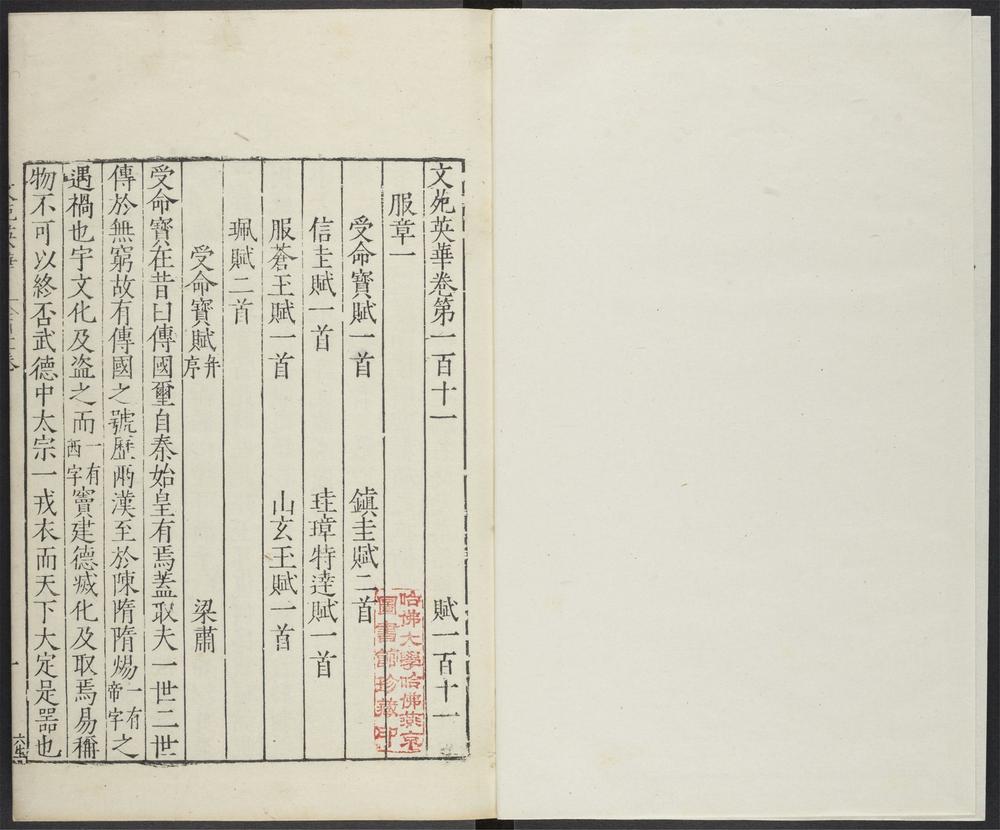 文苑英華卷第一百十一　賦一百十一
服章一
受命寶賦一首　鎮圭賦二首
信圭賦一首　珪璋特達賦一首
服蒼玉賦一首　山玄玉賦一首
珮賦二首
受命寶賦并序　梁肅
受命寶在昔曰傳國璽自秦始皇有焉蓋取夫一世二世
傳於無窮故有傳國之號歷兩漢至於陳隋隋煬一有帝字之
遇禍也宇文化及盗之而一有西字竇建德滅化及取焉易稱
物不可以終否武德中太宗一戎衣而天下大定是器也
一
哈佛大學哈佛燕京
圖書館珍藏印